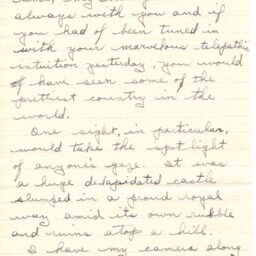 always with you and if
you had of been tuned in
with your marvelous telepathic
intuition yesterday, you would
have seen some of the
prettiest country in the
world.
One sight, in particular,
would take the spot light
of anyone's gaze. It was
a huge delapidated castle
slumped in a proud royal
way amid its own rubble
and ruins atop a hill.
I have my camera along